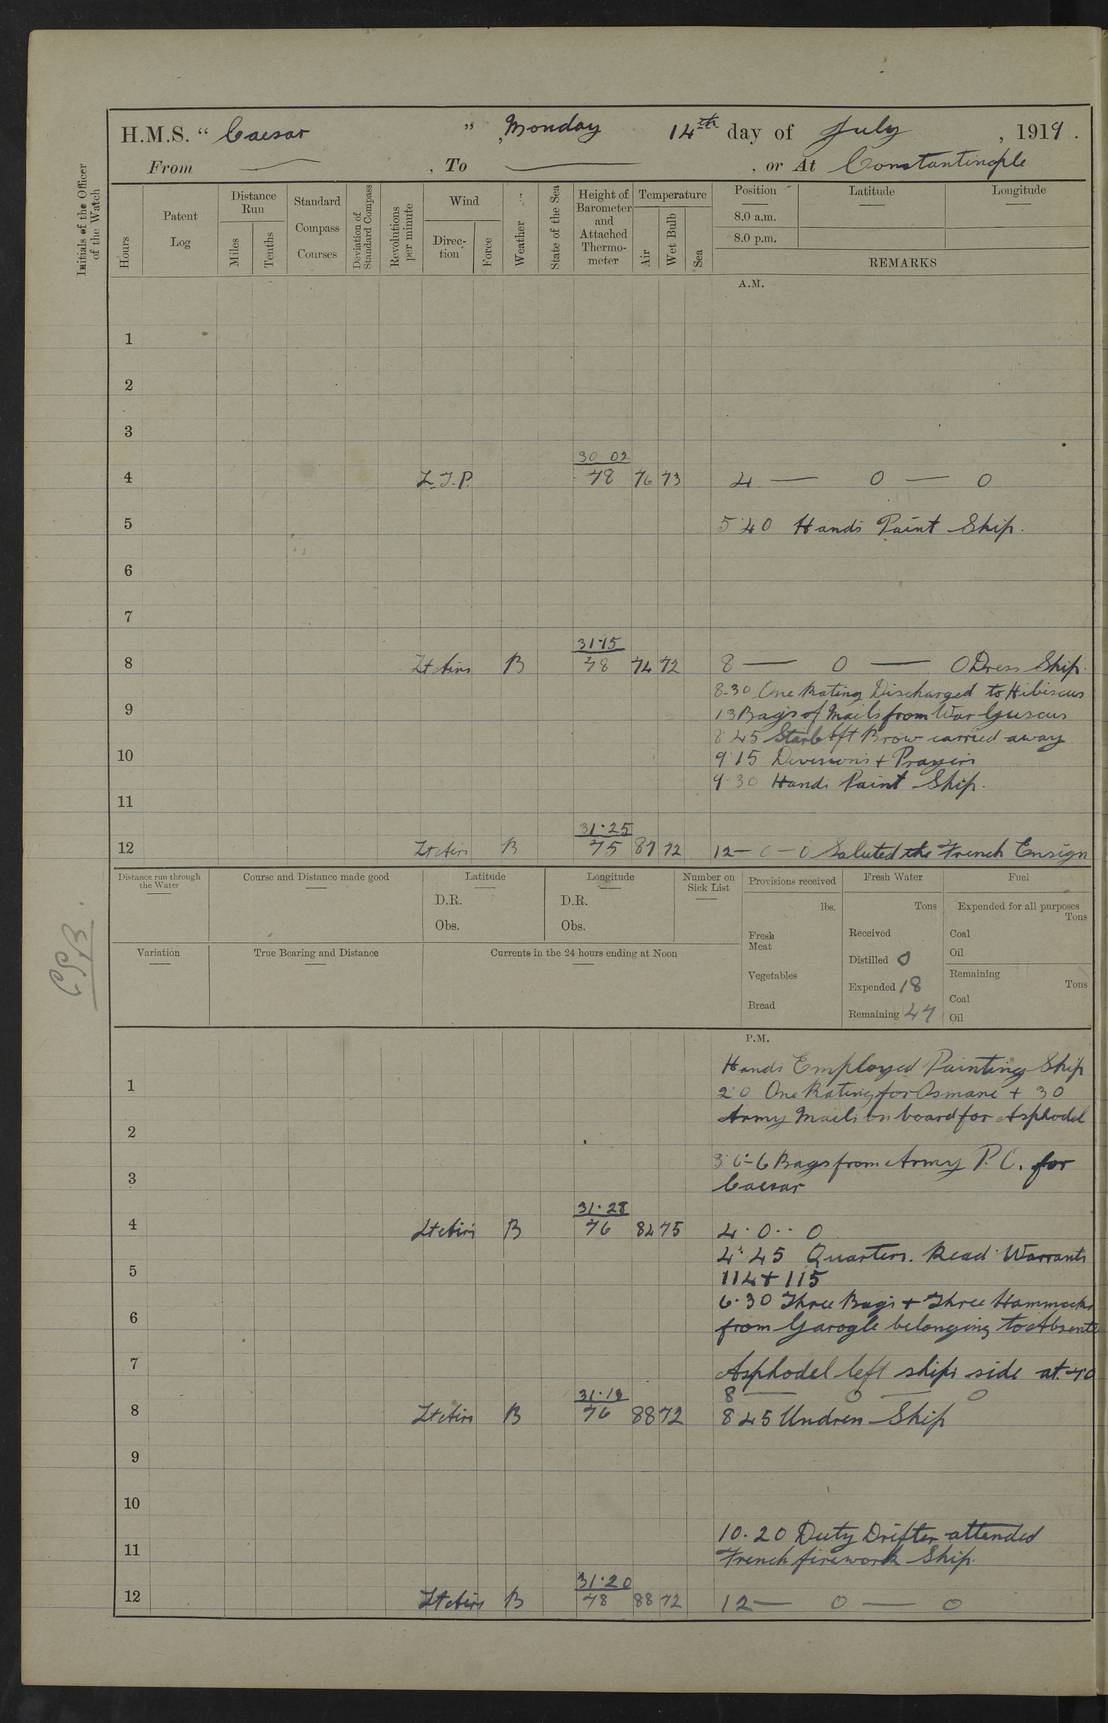 H.M.S. " Caesar " , Monday 14th day of July , 1919 .
From — , To — , or At Constantinople
Initials of the Officer of the Watch
Hours
Patent Log
Distance Run
Miles
Tenths
Standard Compass Courses
Deviation of Standard Compass
Revolutions per minute
Wind
Direction
Force
Weather
State of the Sea
Height of Barometer and Attached Thermometer
Temperature
Air
Wet Bulb
Sea
Position Latitude Longitude
8.0 a.m.
8.0 p.m.
REMARKS
A.M.
1
2
3
30 02
4 78 76 73 4 — 0 — 0
5 5 40 Hands Paint Ship.
6
7
31·15
8 Lt Airs B 78 74 72 8 — 0 — 0 Dress Ship.
8-30 One Rating Discharged to Hibiscus
9 13 Bags of Mails from War
8 45 Starb Aft Brow carried away
10 9 15 Divisions + Prayers
9 30 Hands Paint Ship.
11
31·25
12 Lt Airs B 75 81 72 12 — 0 — 0 Saluted the French Ensign
Distance run through the Water
Course and Distance made good
Latitude
D.R.
Obs.
Longitude
D.R.
Obs.
Number on Sick List
Provisions received
lbs.
Fresh Meat
Vegetables
Bread
Fresh Water
Tons
Received
Distilled 0
Expended 18
Remaining 47
Fuel
Expended for all purposes
Tons
Coal
Oil
Remaining
Tons
Coal
Oil
Variation
True Bearing and Distance
Currents in the 24 hours ending at Noon
P.M.
Hands Employed Painting Ship
1 2·0 One Rating for Osmane + 30
Army Mails on board for Asphodel
2
3·0 - 6 Bags from Army P.O. for
3 Caesar
31·28
4 Lt Airs B 76 82 75 4·0··0
4·45 Quarters. Read Warrants
5 114 + 115
6·30 Three Bags + Three Hammocks
6 from belonging to
7 Asphodel left ships side at
31·19 8 — 0 — 0
8 Lt Airs B 76 88 72 8 45 Undress Ship
9
10
10·20 Duty Drifter attended
11 French firework Ship.
31·20
12 Lt Airs B 78 88 72 12 — 0 — 0